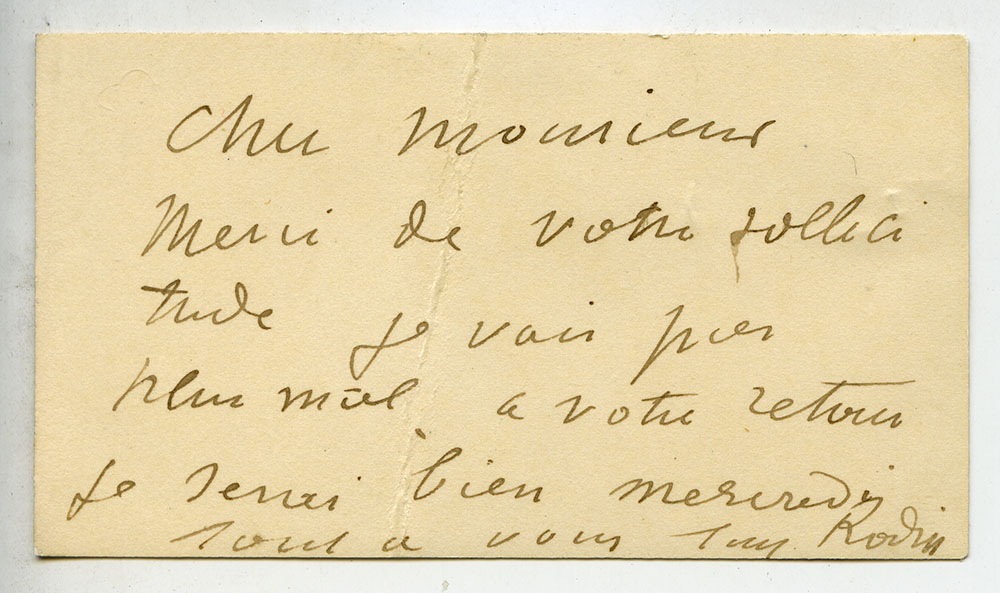 Cher monsieur
Merci de votre sollici
tude je vais pas
plus mal a votre retour
je serai bien mercredi
tout a vous Rodin